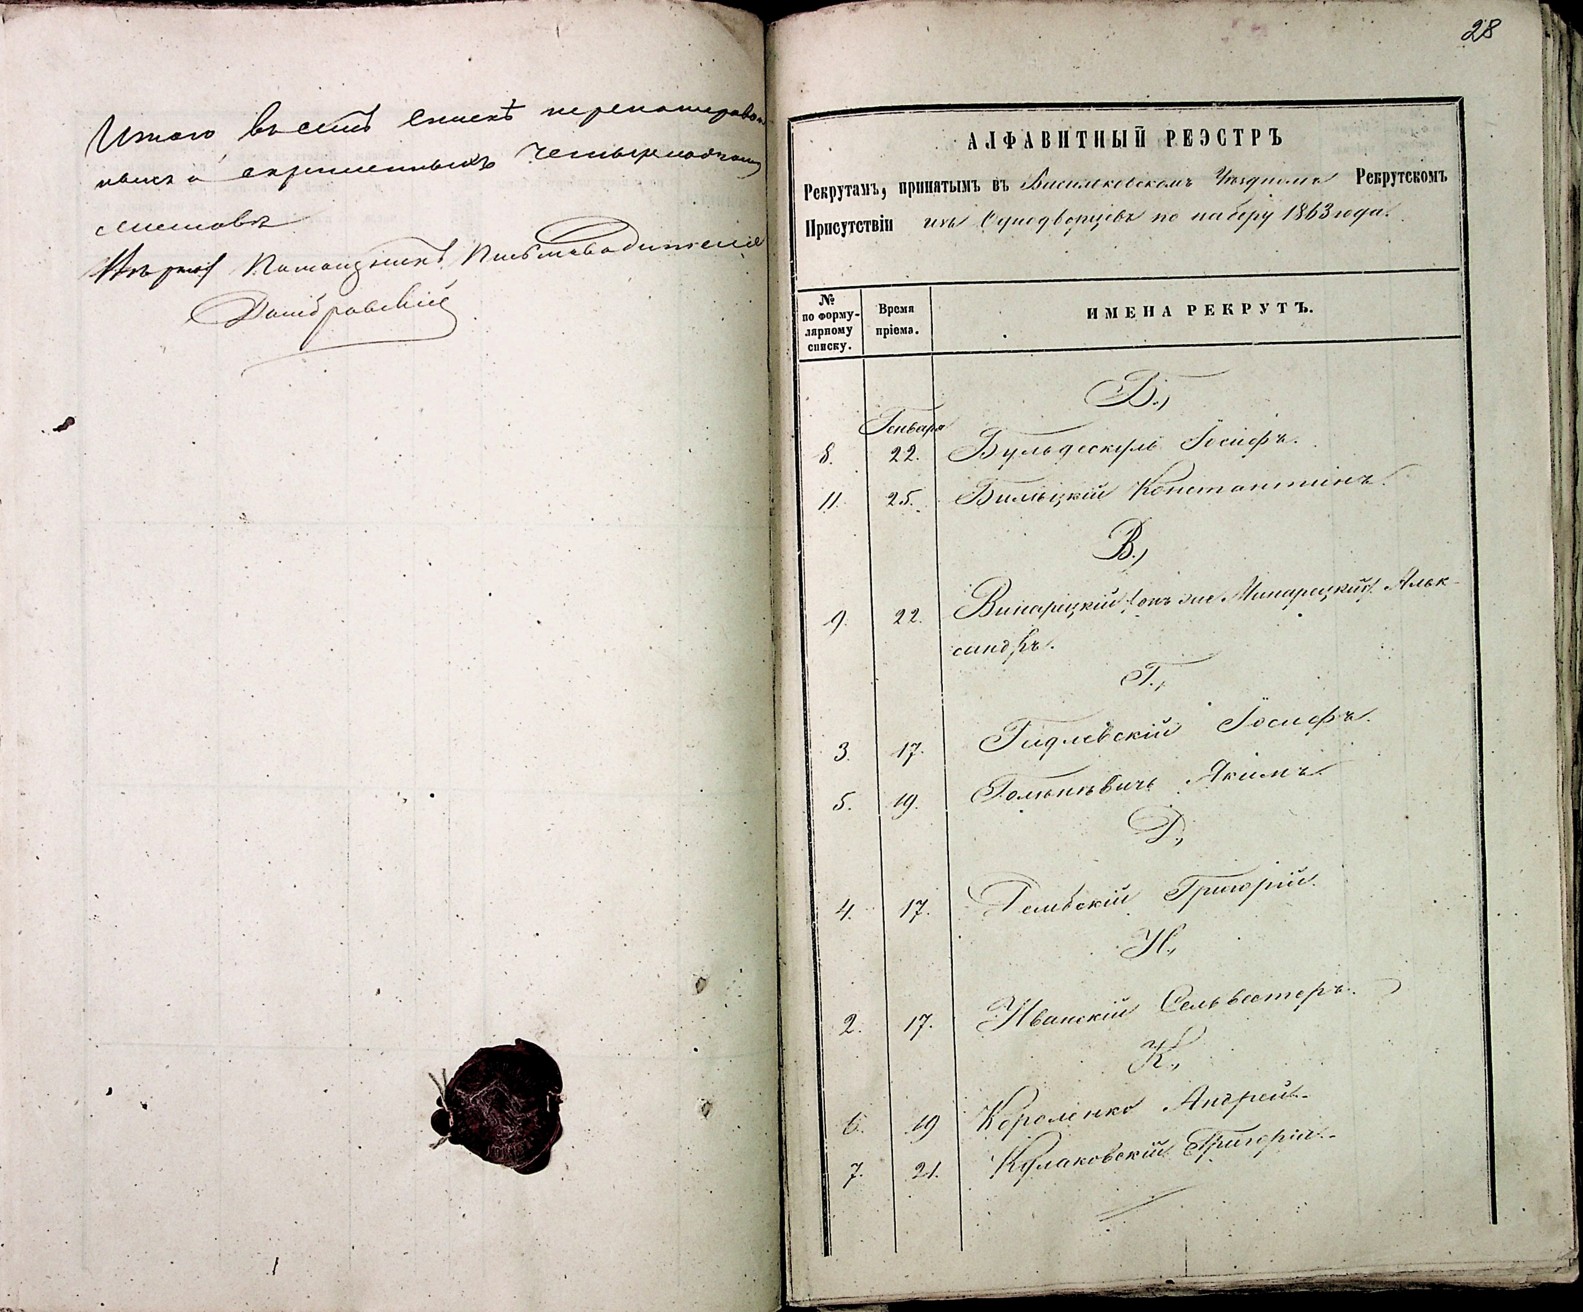 Итого въ семъ спискѣ перенумерован-
ныхъ и скрепленныхъ четырнадцать
листовъ
Помощникъ Письмоводителя
Домбровскій
28
АЛФАВИТНЫЙ РЕЭСТРЪ
Рекрутамъ, принятымъ въ Васильковскомъ Уѣздномъ Рекрутскомъ
Присутствіи изъ Однодворцевъ по набору 1863 года.
№ по форму-лярному списку.
Время пріема.
ИМЕНА РЕКРУТЪ.
Б.,
Генваря
8. 22. Іосифъ.
11. 25. Бильцкій Константинъ.
В.,
9. 22. Винарицкій (онъ же Минарецкій) Алек-
сандръ.
Г.,
3. 17. Гидлевскій Іосифъ.
5. 19. Якимъ.
Д.,
4. 17. Дембскій Григорій.
И.,
2. 17. Иванскій Сельвестеръ.
К.,
6. 19 Короленко Андрей.
7. 21. Кулаковскій Григорій.